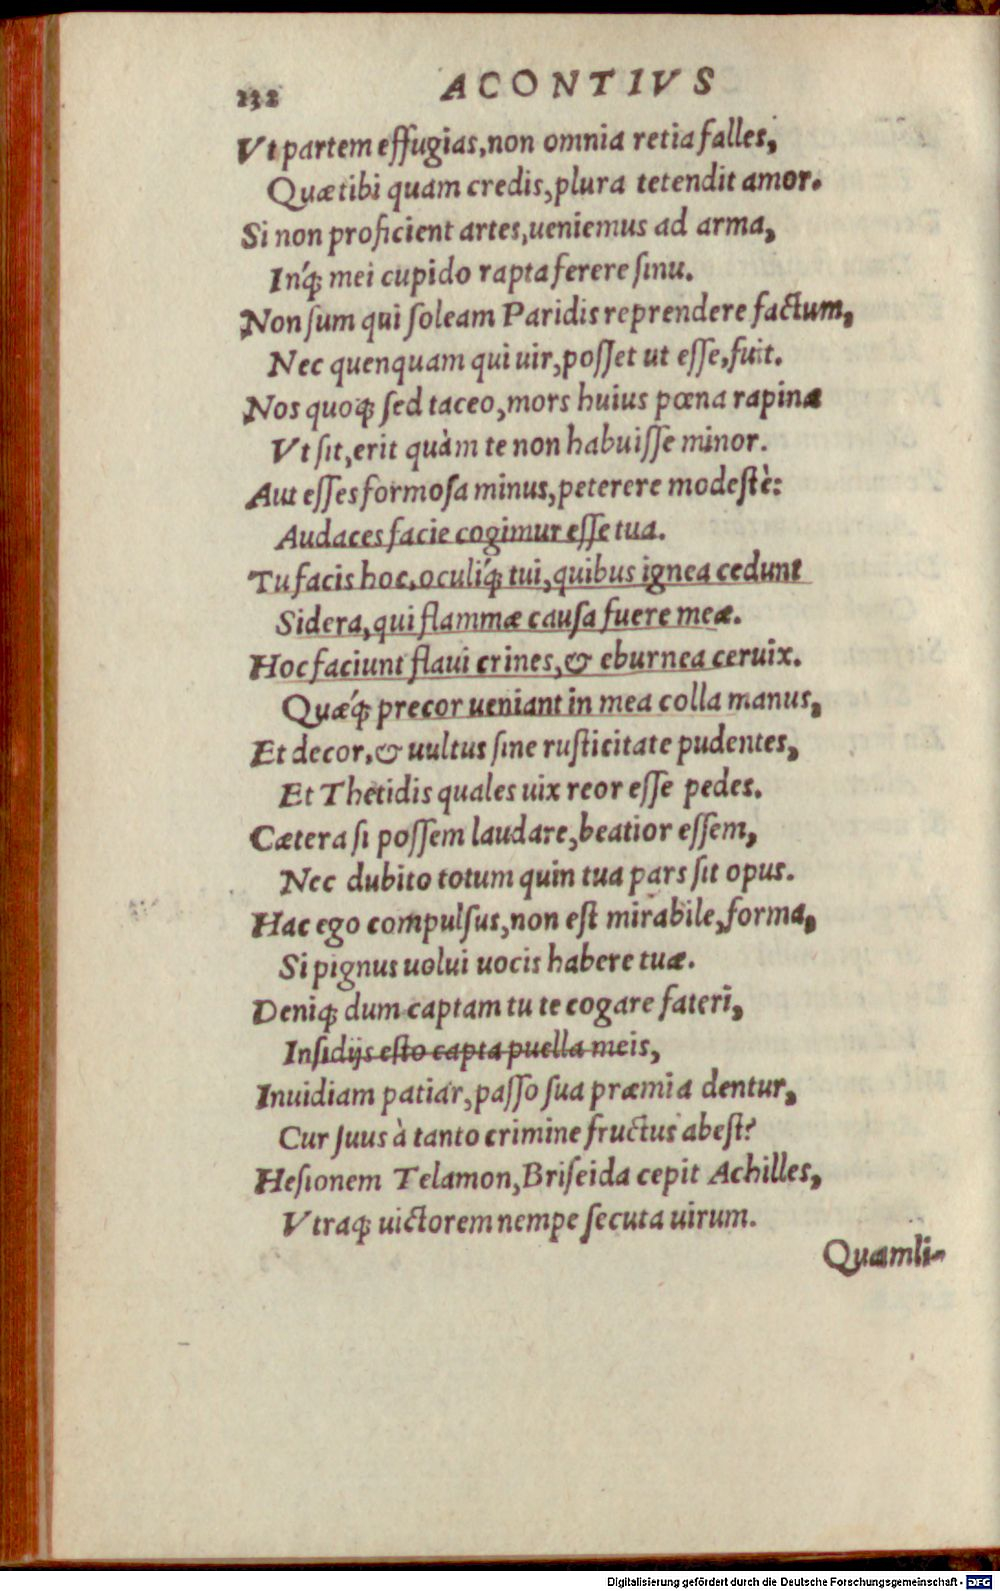 232 ACONTIVS
Vt partem effugias, non omnia retia falles,
Quæ tibi quam credis, plura tetendit amor.
Si non proficient artes, ueniemus ad arma,
Inq́; mei cupido rapta ferere sinu.
Non sum qui soleam Paridis reprendere factum,
Nec quenquam qui uir, posset ut esse, fuit.
Nos quoq; sed taceo, mors huius pœna rapinæ
Vt sit, erit quàm te non habuisse minor.
Aut esses formosa minus, peterere modestè:
Audaces facie cogimur esse tua.
Tu facis hoc, oculiq́; tui, quibus ignea cedunt
Sidera, qui flammæ causa fuere meæ.
Hoc faciunt flaui crines, & eburnea ceruix.
Quæq́; precor ueniant in mea colla manus,
Et decor, & uultus sine rusticitate pudentes,
Et Thetidis quales uix reor esse pedes.
Cætera si possem laudare, beatior essem,
Nec dubito totum quin tua pars sit opus.
Hac ego compulsus, non est mirabile, forma,
Si pignus uolui uocis habere tuæ.
Deniq; dum captam tu te cogare fateri,
Insidijs esto capta puella meis,
Inuidiam patiar, passo sua præmia dentur,
Cur suus à tanto crimine fructus abest?
Hesionem Telamon, Briseida cepit Achilles,
Vtraq; uictorem nempe secuta uirum.
Quamli-
Digitalisierung gefördert durch die Deutsche Forschungsgemeinschaft - DFG